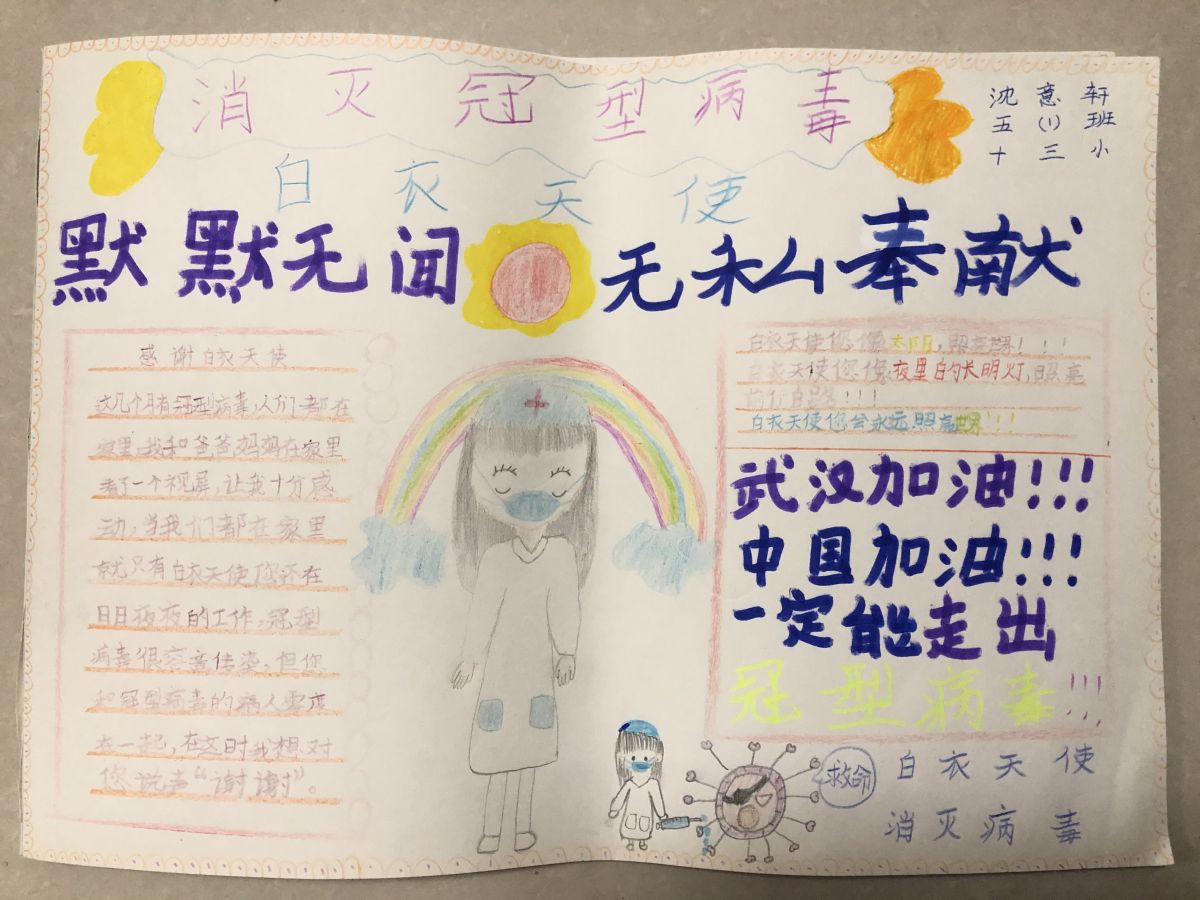 消灭冠型病毒
沈意轩
五(1)班
十三小
白衣天使
默默无闻 无私奉献
感谢白衣天使
这几个月有冠型病毒,人们都在
家里,我和爸爸妈妈在家里
看了一个视屏,让我十分感
动,当我们都在家里
就只有白衣天使您还在
日日夜夜的工作,冠型
病毒很容易传染,但你
和冠型病毒的病人零度
在一起,在这时我想对
您说声“谢谢”。
白衣天使您像太阳,照亮世界!!!
白衣天使您像夜里的长明灯,照亮
前行道路!!!
白衣天使您会永远照亮世界!!!
武汉加油!!!
中国加油!!!
一定能走出
冠型病毒!!!
救命
白衣天使
消灭病毒